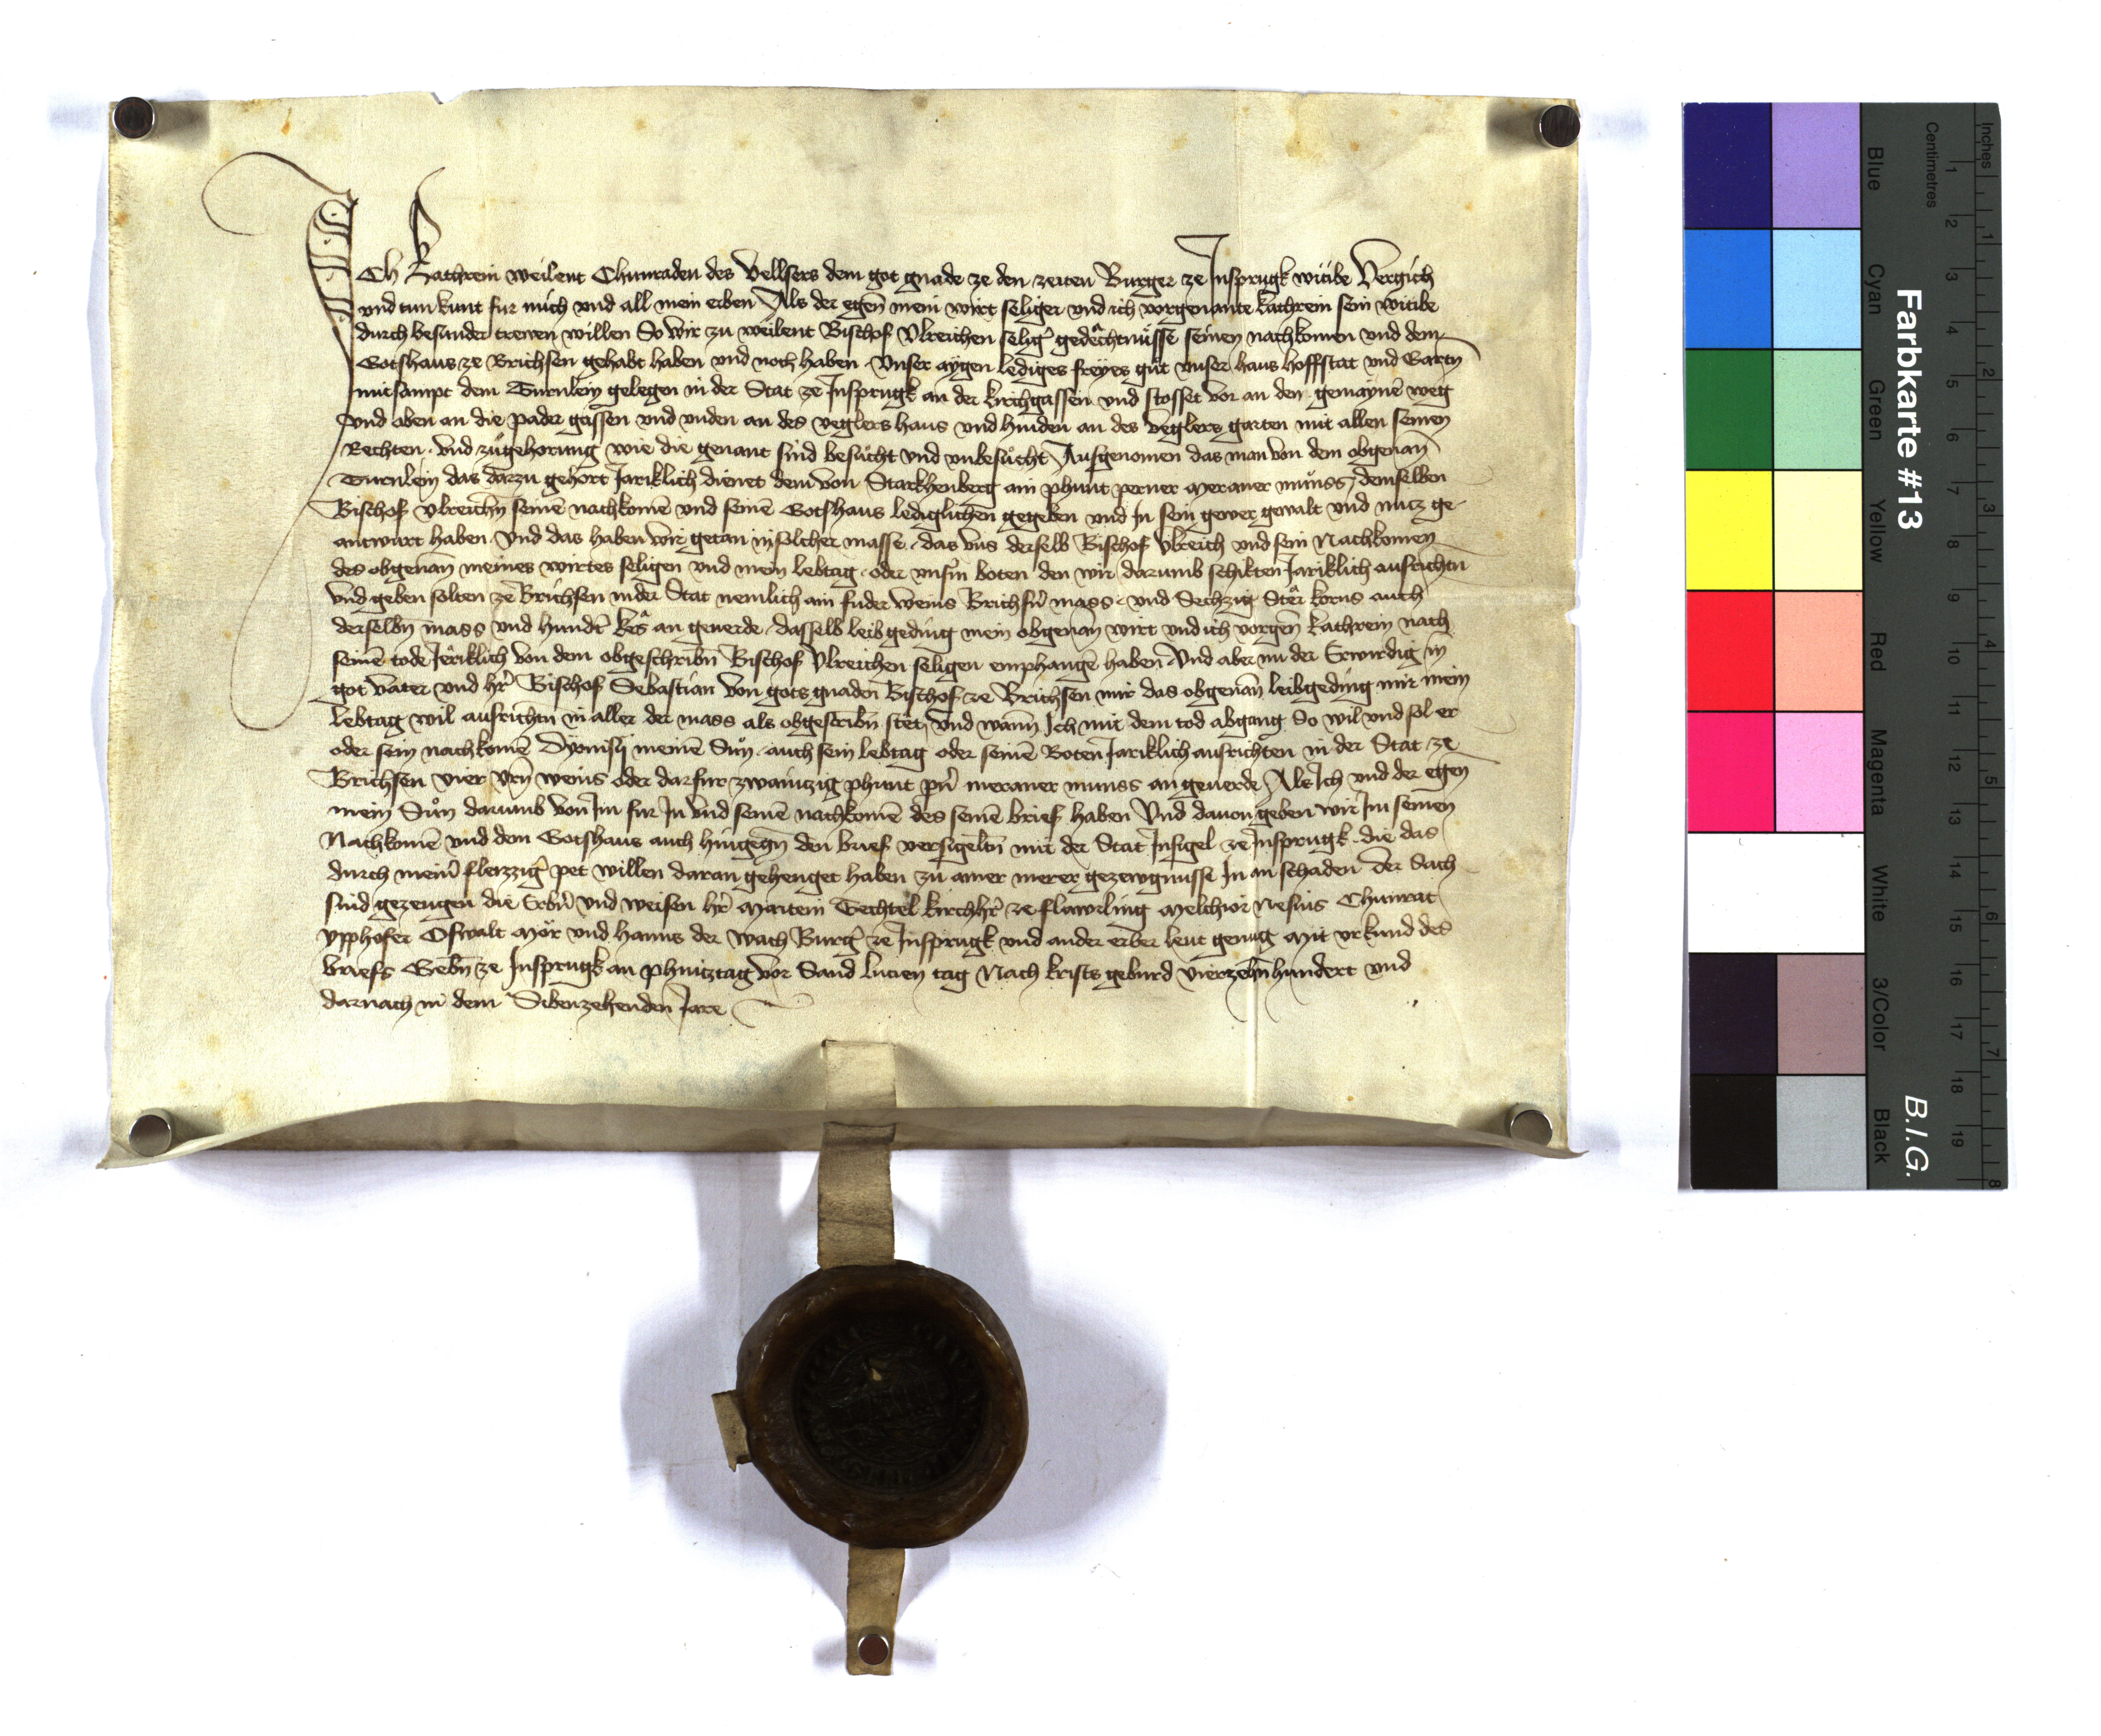 Ich Kathrein weilent Chunraden des Vellsers dem got gnade ze den zeiten Burger ze Insprugk witibe Vergich
und tun kunt fur mich und all mein erben Als der egen̄ mein wirt seliger und ich vorgenante kathrein sein witibe
durch besunder trewen willen So wir zu weilent Bischof Ulreichen selig̕ gedechtnüsse seinen nachkomen und dem
Gotshaus ze Brichsen gehabt haben und noch haben Unser aygen lediges freyes gůt unser haus hoffstat und Gartn̄
mitsampt dem Turnlein gelegen in der Stat ze Insprugk an der kirchgassen und stosset vor an den gemaynē weg
und oben an die pader gassen und unden an des veglers haus und hinden an des veglers garten mit allen seinen
Rechten und zůgehorung wie die genant sind besůcht und unbesůcht Ausgenomen das man von dem obgenan̄
Turnlein das darzu gehort Jariklich dienet dem von Starkhenberg ain phunt perner meraner můnss demselben
Bischof Ulreichn̄ seinē nachkomē und seinē Gotshaus lediglichen gegeben und In sein gewer gewalt und nutz ge-
antwurt haben Und das haben wir getan in solcher masse das uns derselb Bischof Ulreich und sein Nachkomen
des obgenan̄ meines wirtes seligen und mein lebtag oder unsn̄ boten den wir darumb schikten Jariklich ausrichtn
und geben solten ze Brichsen in der Stat nemlich ain fuder weins Brichsn̄ mass und Sechzig Ster korns auch
derselbn̄ mass und hundt̄ kês an geuerde dasselb leibgeding mein obgenan̄ wirt und ich vorgen̄ kathrein nach
seinē tode Jeriklich von dem obgeschribn̄ Bischof Ulreichen seligen emphangē haben Und aber nu der Erwirdig in
got vater und hr̄ Bischof Sebastian von gots gnaden Bischof ze Brichsen mir das obgenan̄ leibgeding mir mein
lebtag wil ausrichtn in aller der mass als obgescribn̄ stet und wann Ich mit dem tod abgang So wil und sol er
oder sein nachkomē Dyonisy meinē Sůn auch sein lebtag oder seinē Boten Jariklich ausrichten in der Stat ze
Brichsen vier Urn̄ weins oder darfur zwaintzig phunt pn̄ meraner munss an geuerde Als Ich und der egen̄
mein Sůn darumb von Im fur In und seinē nachkomē des seinē brief haben Und dauon geben wir Im seinen
Nachkomē und dem Gotshaus auch hingegn̄ den brief versigeltn̄ mit der Stat Insigel ze Insprugk die das
durch mein̄ fleizzig̕ pet willen daran gehenget haben zu ainer merer gezewgnusse In an schaden Der Sach
sind gezeugen die Erbn̄ und weisen hr̄ Martein Techtel kirchhr̄ ze flawrling Melchior Nesius Chunrat
Upphofer Oswalt Mör und hanns der wach Burg̕ ze Insprugk und ander erber leut genug Mit urkund des
briefs Gebn̄ ze Insprugk an phintztag vor Sand lucien tag Nach krists geburd vierzehn̄hundert und
darnach in dem Sibenzehenden Jare
Farbkarte #13
B.I.G.
Inches 1 2 3 4 5 6 7 8
Centimetres 1 2 3 4 5 6 7 8 9 10 11 12 13 14 15 16 17 18 19
Blue Cyan Green Yellow Red Magenta White 3/Color Black